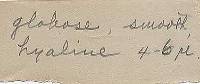 globose, smooth,
hyaline 4-6 µ.